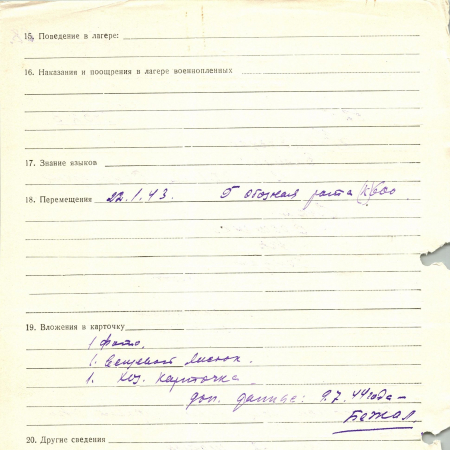 15. Поведение в лагере:
16. Наказания и поощрения в лагере военнопленных
17. Знание языков
18. Перемещения 22.1.43. 5 обозная рота
19. Вложения в карточку
1 фото.
1. Вещевой листок.
1. карточка
доп. данные: 9.7.44 года –
Бежал.
20. Другие сведения